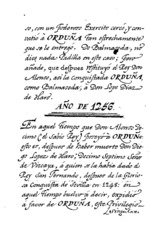 so, con un Poderoso Exercito cercó, y com-
batió a ORDUÑA tan estrechamente
que se le entregó. De Balmaseda, no
dice nada Padilla en este caso; pero
añade, que despues restituyó el Rey Don
Alonso, assi la conquistada ORDUÑA
como Balmaseda, a Don Lope Diaz
de Haro.
AÑO DE 1256.
En aquel tiempo que Don Alonso De-
cimo (el Sabio Rey) ORDUÑA
esto es, despues de haber muerto Don Die-
go Lopez de Haro, Decimo Septimo Señor
de Vizcaya, à quien se la habia dado el
Rey San Fernando, despues de la Glorio-
sa Conquista de Sevilla en 1248: en
aquel tiempo buelvo à decir, expidió
a favor de ORDUÑA, este Privilegio